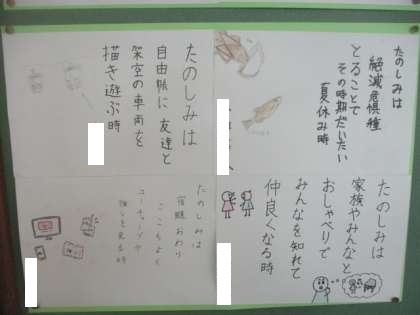 たのしみは
絶滅危惧種
とることで
その時期だいたい
夏休み時
たのしみは
自由帳に友達と
架空の車両を
描き遊ぶ時
たのしみは
家族やみんなと
おしゃべりで
みんなを知れて
仲良くなる時
たのしみは
宿題おわり
こころよく
ユーチューブや
推しを見る時